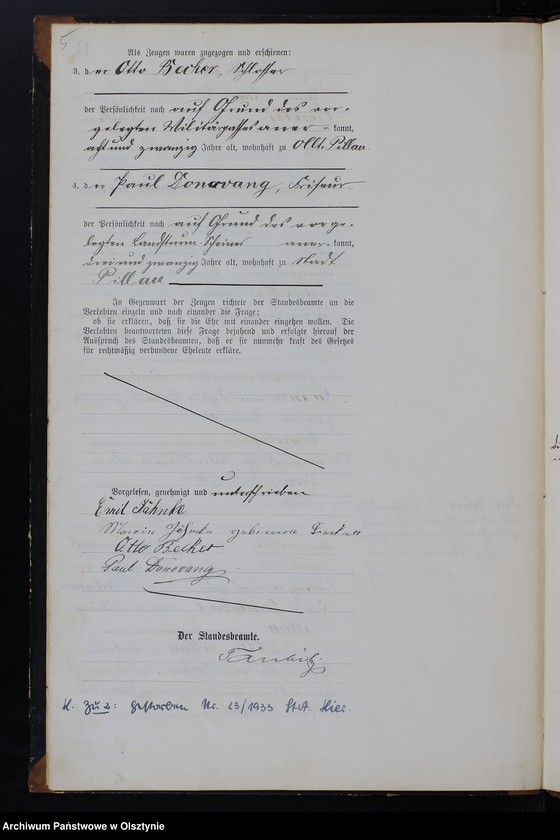 5
Als Zeugen waren zugezogen und erschienen:
3. der Otto Becker, Schlosser
der Persönlichkeit nach auf Grund des vor-
gelegten Militärpasses aner- kannt,
acht und zwanzig Jahre alt, wohnhaft zu Allt. Pillau.
4. der Paul Donovang, Friseur
der Persönlichkeit nach auf Grund des vorge-
legten Landsturm-Scheines aner- kannt,
drei und zwanzig Jahre alt, wohnhaft zu Stadt
Pillau
In Gegenwart der Zeugen richtete der Standesbeamte an die
Verlobten einzeln und nach einander die Frage:
ob sie erklären, daß sie die Ehe mit einander eingehen wollen. Die
Verlobten beantworteten diese Frage bejahend und erfolgte hierauf der
Ausspruch des Standesbeamten, daß er sie nunmehr kraft des Gesetzes
für rechtmäßig verbundene Eheleute erkläre.
Vorgelesen, genehmigt und unterschrieben
Emil Jähnke
Jähnke geborene
Otto Becker
Paul Donovang
Der Standesbeamte.
H. Zu 2: Gestorben Nr. 23/1933 St.A. Hier.
Archiwum Państwowe w Olsztynie